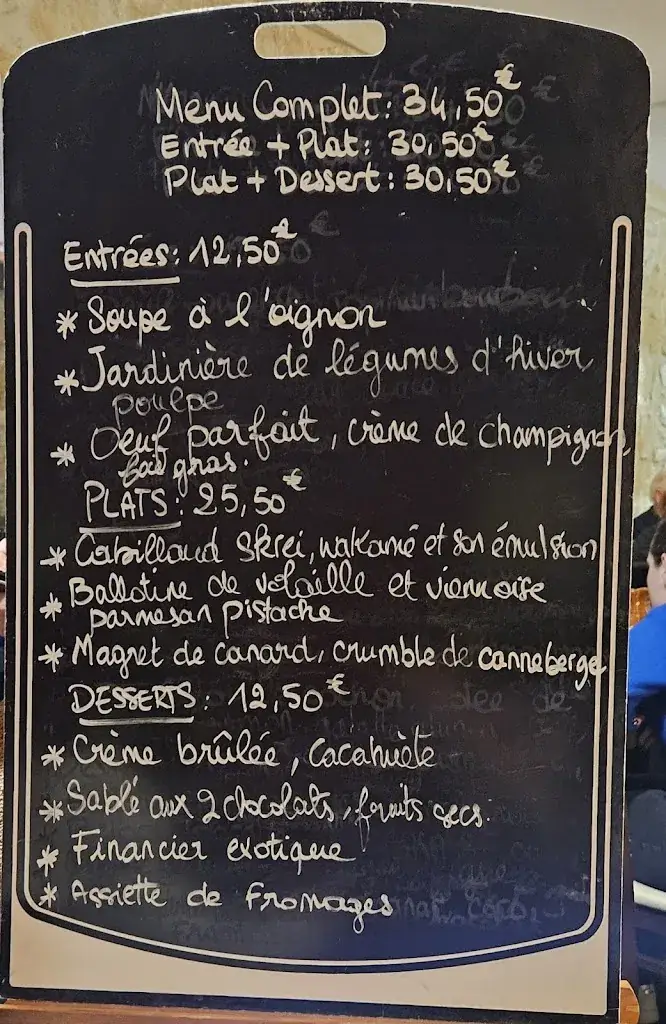 Menu Complet: 34,50€
Entrée + Plat: 30,50€
Plat + Dessert: 30,50€
Entrées: 12,50€
* Soupe à l'oignon
* Jardinière de légumes d'hiver
poulpe
* Oeuf parfait, crème de champignon
foie gras.
PLATS: 25,50€
* Cabillaud Skrei, wakamé et son émulsion
* Ballotine de volaille et viennoise
parmesan pistache
* Magret de canard, crumble de canneberge
DESSERTS: 12,50€
* Crème brûlée, cacahuète
* Sablé aux 2 chocolats, fruits secs.
* Financier exotique
* Assiette de Fromages